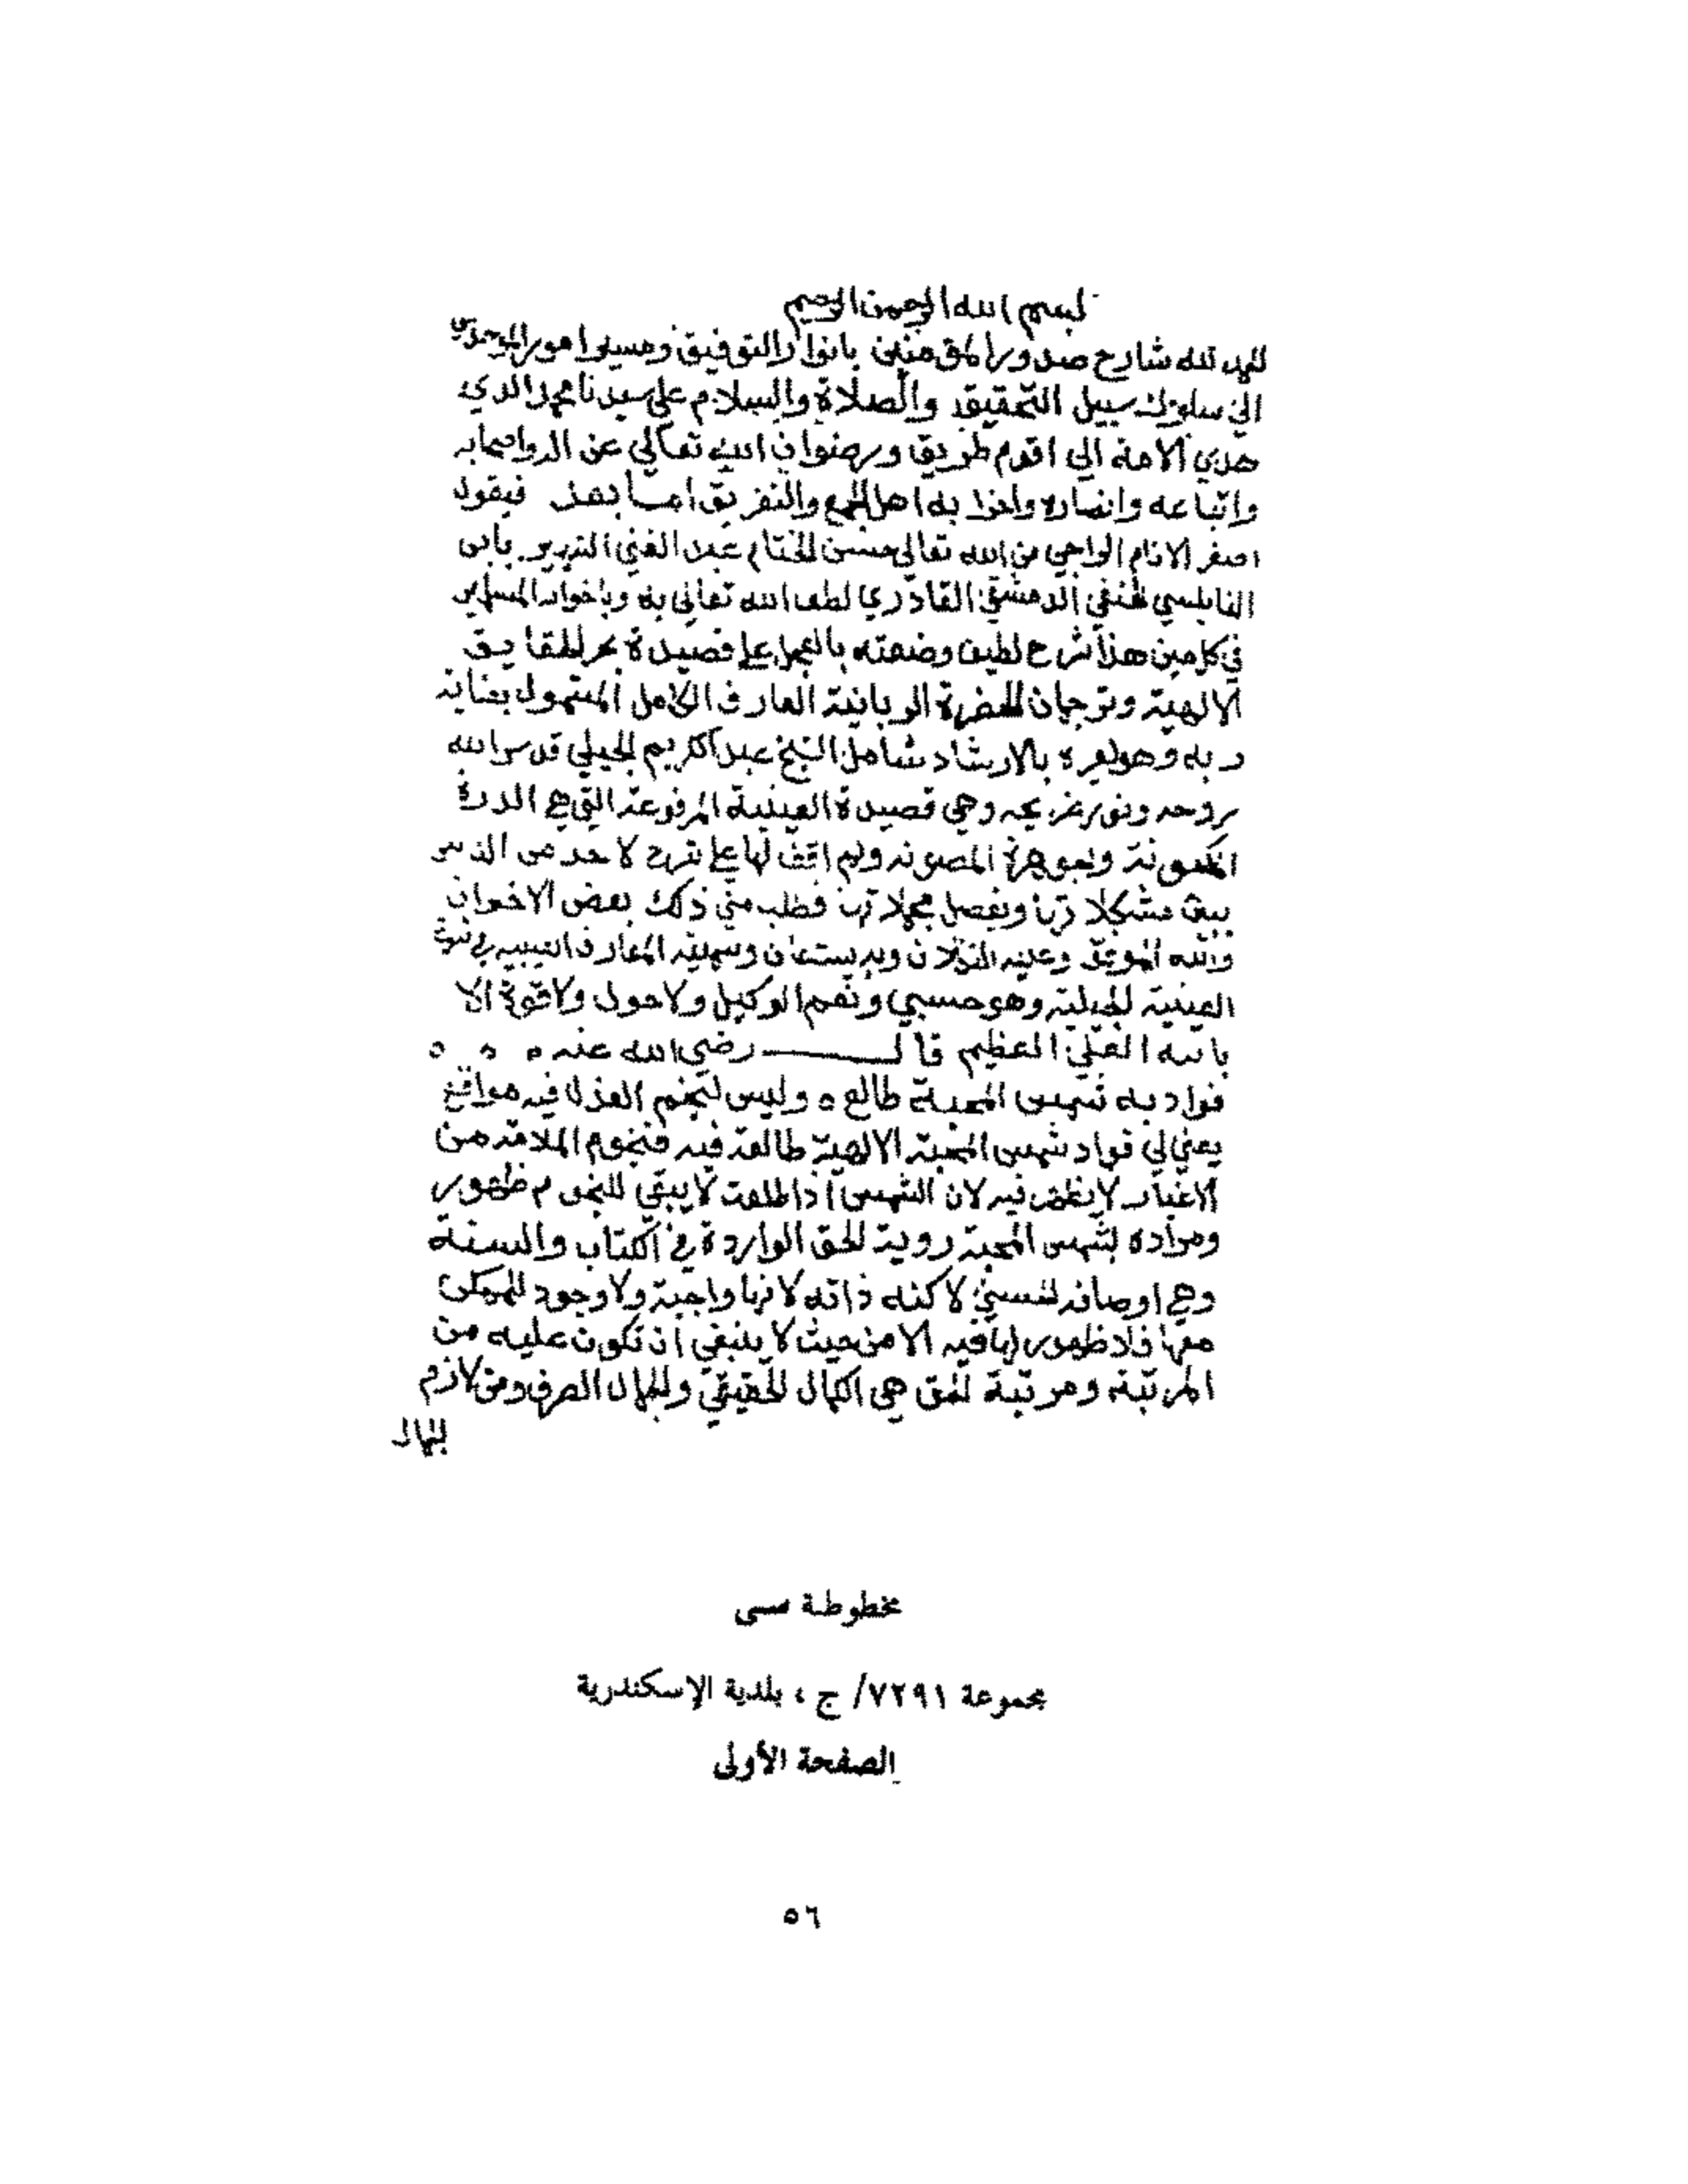 بسم الله الرحمن الرحيم
الحمد لله شارح صدور المؤمنين بانوار التوفيق وميسر امور الموحدين
الى سلوك سبيل التحقيق والصلاة والسلام على سيدنا محمد الذي
هدي الامة الي اقوم طريق ورضوان الله تعالي عن اله واصحابه
واتباعه وانصاره واحزابه اهل الجمع والتفريق اما بعد فيقول
اصغر الانام الراجي من الله تعالي حسن الختام عبد الغني الشهير بابن
النابلسي الحنفي الدمشقي القادري لطف الله تعالي به وباخوانه المسلمين
في كل حين هذا شرح لطيف وضعته بالعجل علي قصيدة بحر الحقايق
الالهية وترجمان الحضرة الربانية العارف الكامل المشمول بعناية
ربه وهو لغيره بالارشاد شامل الشيخ عبد الكريم الجيلي قدس الله
روحه ونور ضريحه وهي قصيدة العينية المرفوعة التي هي الدرة
المكنونة والجوهرة المصونه ولم اقف لها علي شرح لاحد من الناس
يبين مشكلاتها ويفصل مجملاتها فطلب مني ذلك بعض الاخوان
والله الموفق وعليه التكلان وبه يستعان وسميته المعارف الغيبيه في شرح
العينية الجيلية وهو حسبي ونعم الوكيل ولا حول ولا قوة الا
بالله العلي العظيم قال رضي الله عنه ه ه ه
فواد به شمس المحبة طالع ه وليس لنجم العذل فيه مواقع
يعني لي فواد شمس المحبة الالهية طالعة فيه فنجوم الملامة من
الاغيار لا يظهر فيه لان الشمس اذا طلعت لا يبقي للنجوم ظهور
ومراده بشمس المحبة روية الحق الواردة في الكتاب والسنة
وهي اوصافه لنفسه لا كنه ذاته لانها واجبة ولا وجود للممكن
معها فلا ظهور لها فيه الا من حيث لا ينبغي ان تكون عليه من
المرتبة ومرتبة الحق هي الكمال الحقيقي والجمال الصرف ومن لازم
الجمال
مخطوطة سى
مجموعة ٧٢٩١/ ج ، بلدية الإسكندرية
الصفحة الأولى
٥٦